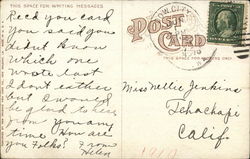 THIS SPACE FOR WRITING MESSAGES
Recd you card
you said you
didnt know
which one
wrote last
I dont either
but I would
be glad to hear
from you any
time How are
you Folks? From
Helen
POST CARD
THIS SPACE FOR ADDRESS ONLY
Miss Nellie Jenkins
Tehachapi
Calif.
1910